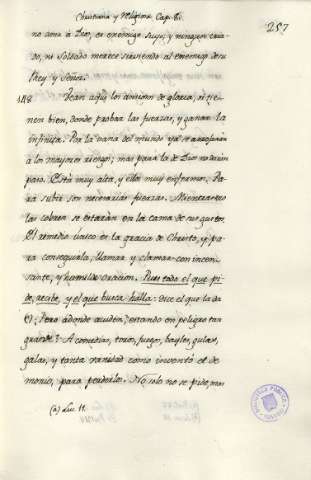 Christiana y Religiosa. Cap. 
257
no ama à Dios, es enemigo suyo; y ningun cria-
do, ni soldado merece sirviendo al enemigo de su
Rey y Señor.
Vean aqui los ansiosos de gloria, si tie-
nen bien, donde probar las fuerzas, y ganar la
infinita. Por la vana del mundo se arrojaràn
a los mayores riesgos; mas para la de Dios no daràn
paso. Està muy alta, y ellos muy enfermos. Pa-
ra subir son necesarias fuerzas. Mientras no
las cobren se estaràn en la cama de sus gustos.
El remedio unico es la gracia de Christo, y pa-
ra conseguirla, llamar y clamar con incen-
sante, y humilde oracion. Pues todo el que pi-
de, recibe, y el que busca halla: dice el que la da
Pero adonde acuden, estando en peligro tan
grande? A comedias, toros, juegos, bayles, gulas,
galas, y tanta vanidad como inventò el de-
monio, para perderlos. No solo no se pide, mas
(a) Luc. 11.
BIBLIOTECA PUBLICA